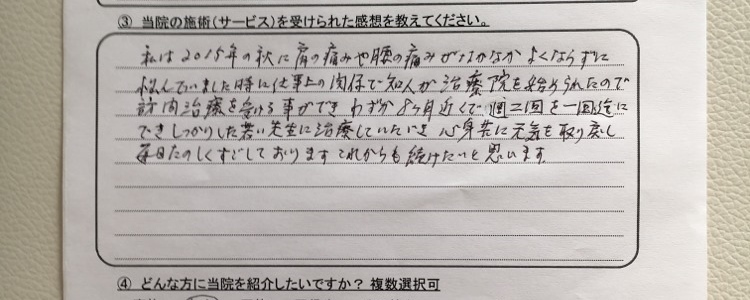 ③ 当院の施術(サービス)を受けられた感想を教えてください。
私は2015年の秋に肩の痛みや腰の痛みがなかなかよくならずに
悩んでいました時に仕事上の関係で知人が治療院を始められたので
訪問治療を受ける事ができ わずか8ヶ月近くで 週二回を一回迄に
できしっかりした若い先生に治療していただき 心身共に元気を取り戻し
毎日たのしくすごしております これからも続けたいと思います
④ どんな方に当院を紹介したいですか? 複数選択可